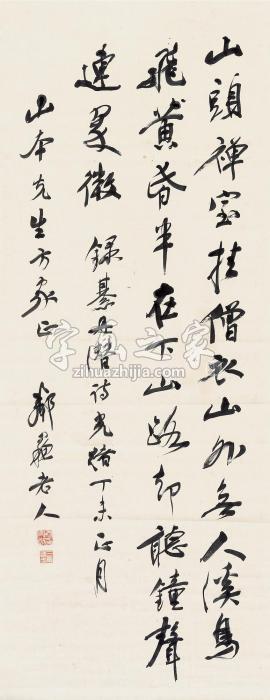 山頭禪室挂僧衣山外無人溪鳥
飛黃昏半在下山路却聽鐘聲
連翠微 錄綦毋潛詩光緒丁未正月
山本先生方家正 鄰蘇老人
字画之家
zihuazhijia.com